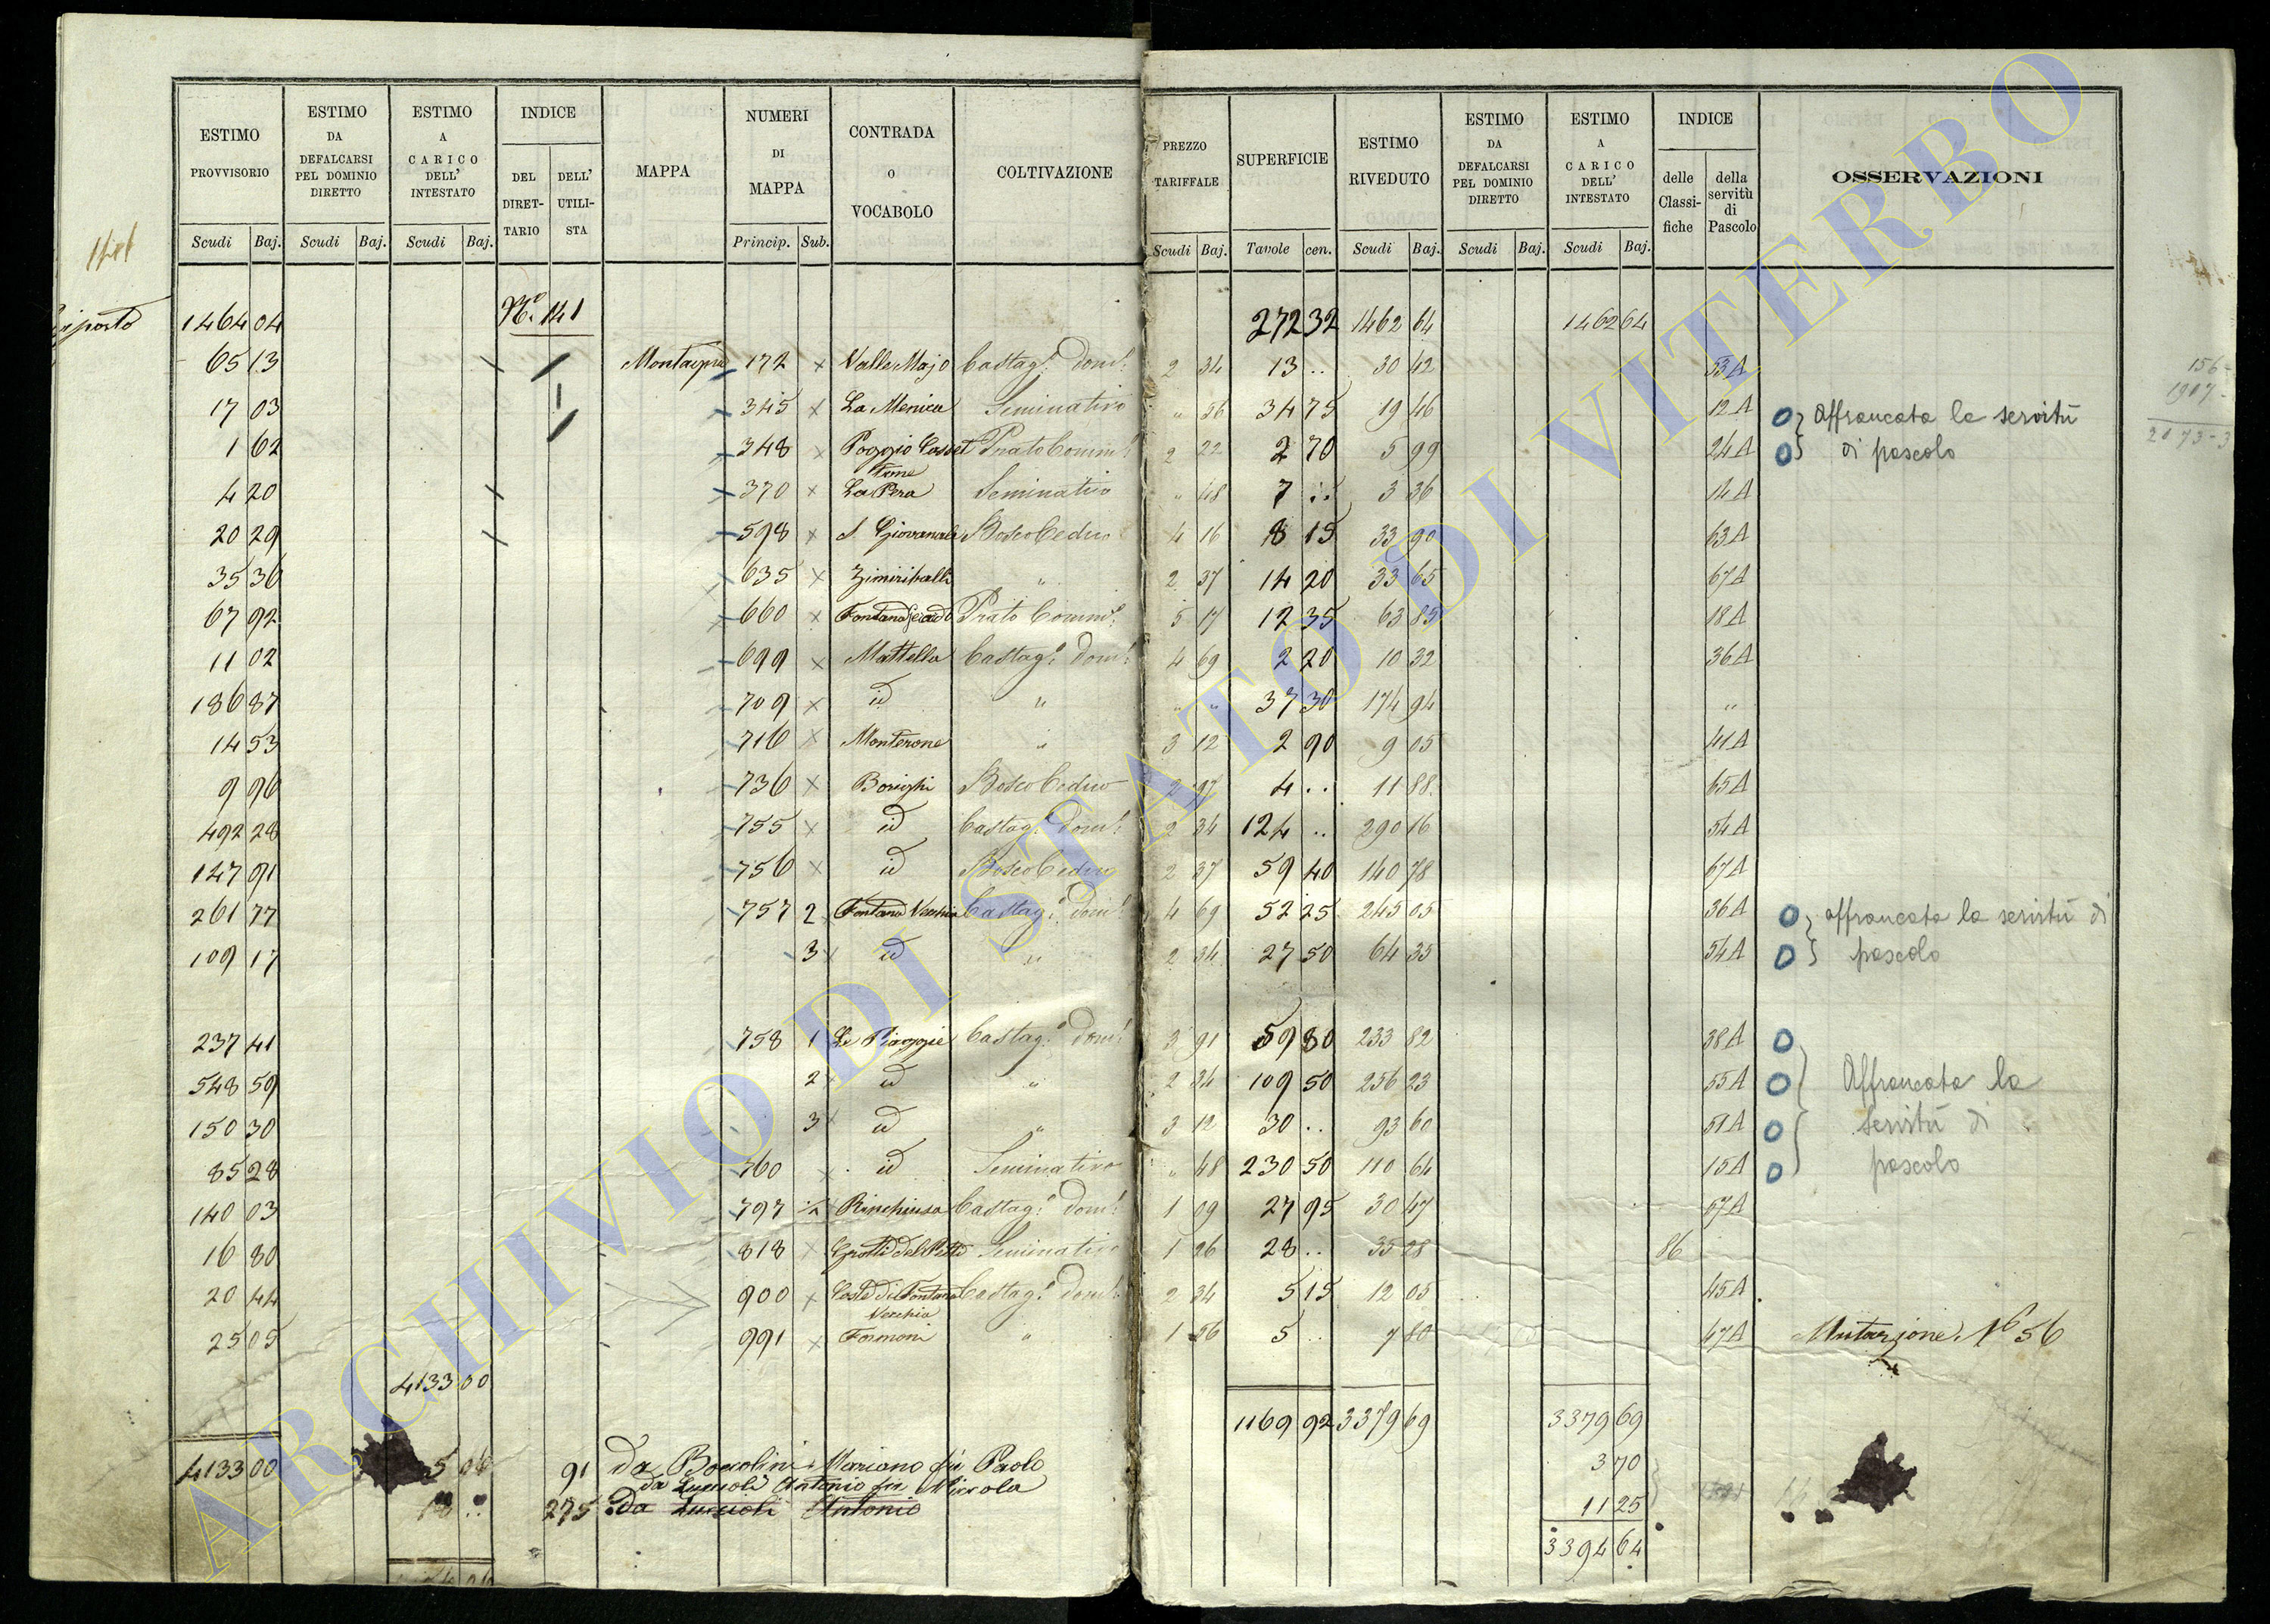 ESTIMO PROVVISORIO | ESTIMO DA DEFALCARSI PEL DOMINIO DIRETTO | ESTIMO A CARICO DELL' INTESTATO | INDICE DEL DIRET-TARIO | DELL' UTILI-STA | MAPPA | NUMERI DI MAPPA | CONTRADA O VOCABOLO | COLTIVAZIONE | PREZZO TARIFFALE | SUPERFICIE | ESTIMO RIVEDUTO | ESTIMO DA DEFALCARSI PEL DOMINIO DIRETTO | ESTIMO A CARICO DELL' INTESTATO | INDICE delle Classi-fiche | della servitù di Pascolo | OSSERVAZIONI
Scudi Baj. | Scudi Baj. | Scudi Baj. | Princip. Sub. | Scudi Baj. | Tavole cen. | Scudi Baj. | Scudi Baj. | Scudi Baj.
1464 04 | Nº 141 | 272 32 | 1462 64 | 1462 64
65 13 | 172 x | Valle Majo | Castag.º Dom.l | 2 34 | 13 .. | 30 42 | 53A
17 03 | 345 x | La Menica | Seminativo | " 56 | 34 75 | 19 46 | 12A | Affrancata la servitù
1 62 | 348 x | Poggio | Prato | 2 22 | 2 70 | 5 99 | 24A | di pascolo
4 20 | 370 x | La Pera | Seminativo | " 48 | 7 .. | 3 36 | 14A
20 29 | 598 x | Bosco Ceduo | 4 16 | 8 15 | 33 90 | 63A
35 36 | 635 x | " | 2 37 | 14 20 | 33 65 | 67A
67 92 | 660 x | Prato | 5 17 | 12 35 | 63 85 | 18A
11 02 | 699 x | Mattella | Castag.º Dom.l | 4 69 | 2 20 | 10 32 | 36A
186 87 | 709 x | id | " | " " | 37 30 | 174 94 | "
14 53 | 716 x | Monterone | " | 3 12 | 2 90 | 9 05 | 41A
9 96 | 736 x | Bosco Ceduo | 2 97 | 4 .. | 11 88 | 65A
492 28 | 755 x | id | Castag.º Dom.l | 2 34 | 124 .. | 290 16 | 54A
147 91 | 756 x | id | Bosco Ceduo | 2 37 | 59 40 | 140 78 | 67A
261 77 | 757 2 | Fontana Vecchia | Castag.º Dom.l | 4 69 | 52 25 | 245 05 | 36A | affrancata la servitù di
109 17 | 3 x | id | " | 2 34 | 27 50 | 64 35 | 54A | pascolo
237 41 | 758 1 | Le Piaggie | Castag.º Dom.l | 3 91 | 59 80 | 233 82 | 38A
548 59 | 2 x | id | " | 2 34 | 109 50 | 256 23 | 55A | Affrancata la
150 30 | 3 x | id | " | 3 12 | 30 .. | 93 60 | 51A | servitù di
85 28 | 760 x | id | Seminativo | " 48 | 230 50 | 110 64 | 15A | pascolo
140 03 | 797 | Rinchiusa | Castag.º Dom.l | 1 09 | 27 95 | 30 47 | 57A
16 80 | 818 x | Seminativo | 1 26 | 28 .. | 35 28 | 86
20 44 | 900 x | Coste di Fontana Vecchia | Castag.º Dom.l | 2 34 | 5 15 | 12 05 | 45A
25 05 | 991 x | Formoni | " | 1 56 | 5 .. | 7 80 | 47A | Mutazione Nº 56
4133 00
1169 92 | 3379 69 | 3379 69
4133 00 | 91 | da Mariano fu Paolo | 3 70
da Antonio fu Niccola
275 | da Antonio | 11 25
3394 64
ARCHIVIO DI STATO DI VITERBO